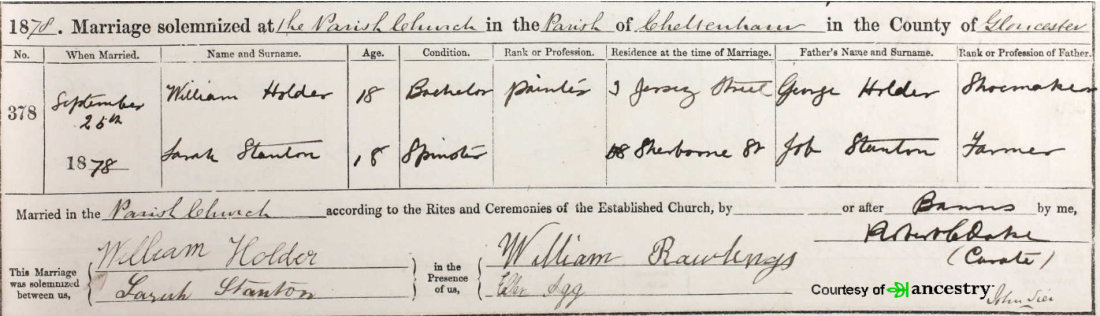 1878. Marriage solemnized at the Parish Church in the Parish of Cheltenham in the County of Gloucester
No. When Married. Name and Surname. Age. Condition. Rank or Profession. Residence at the time of Marriage. Father's Name and Surname. Rank or Profession of Father.
378 September 25th 1878 William Holder 18 Bachelor painter 3 Jersey Street George Holder Shoemaker
Sarah Stanton 18 Spinster 88 Sherborne St Job Stanton Farmer
Married in the Parish Church according to the Rites and Ceremonies of the Established Church, by or after Banns by me,
(Curate)
This Marriage was solemnized between us, William Holder Sarah Stanton in the Presence of us, William Rawlings Ellen Agg
Courtesy of ancestry